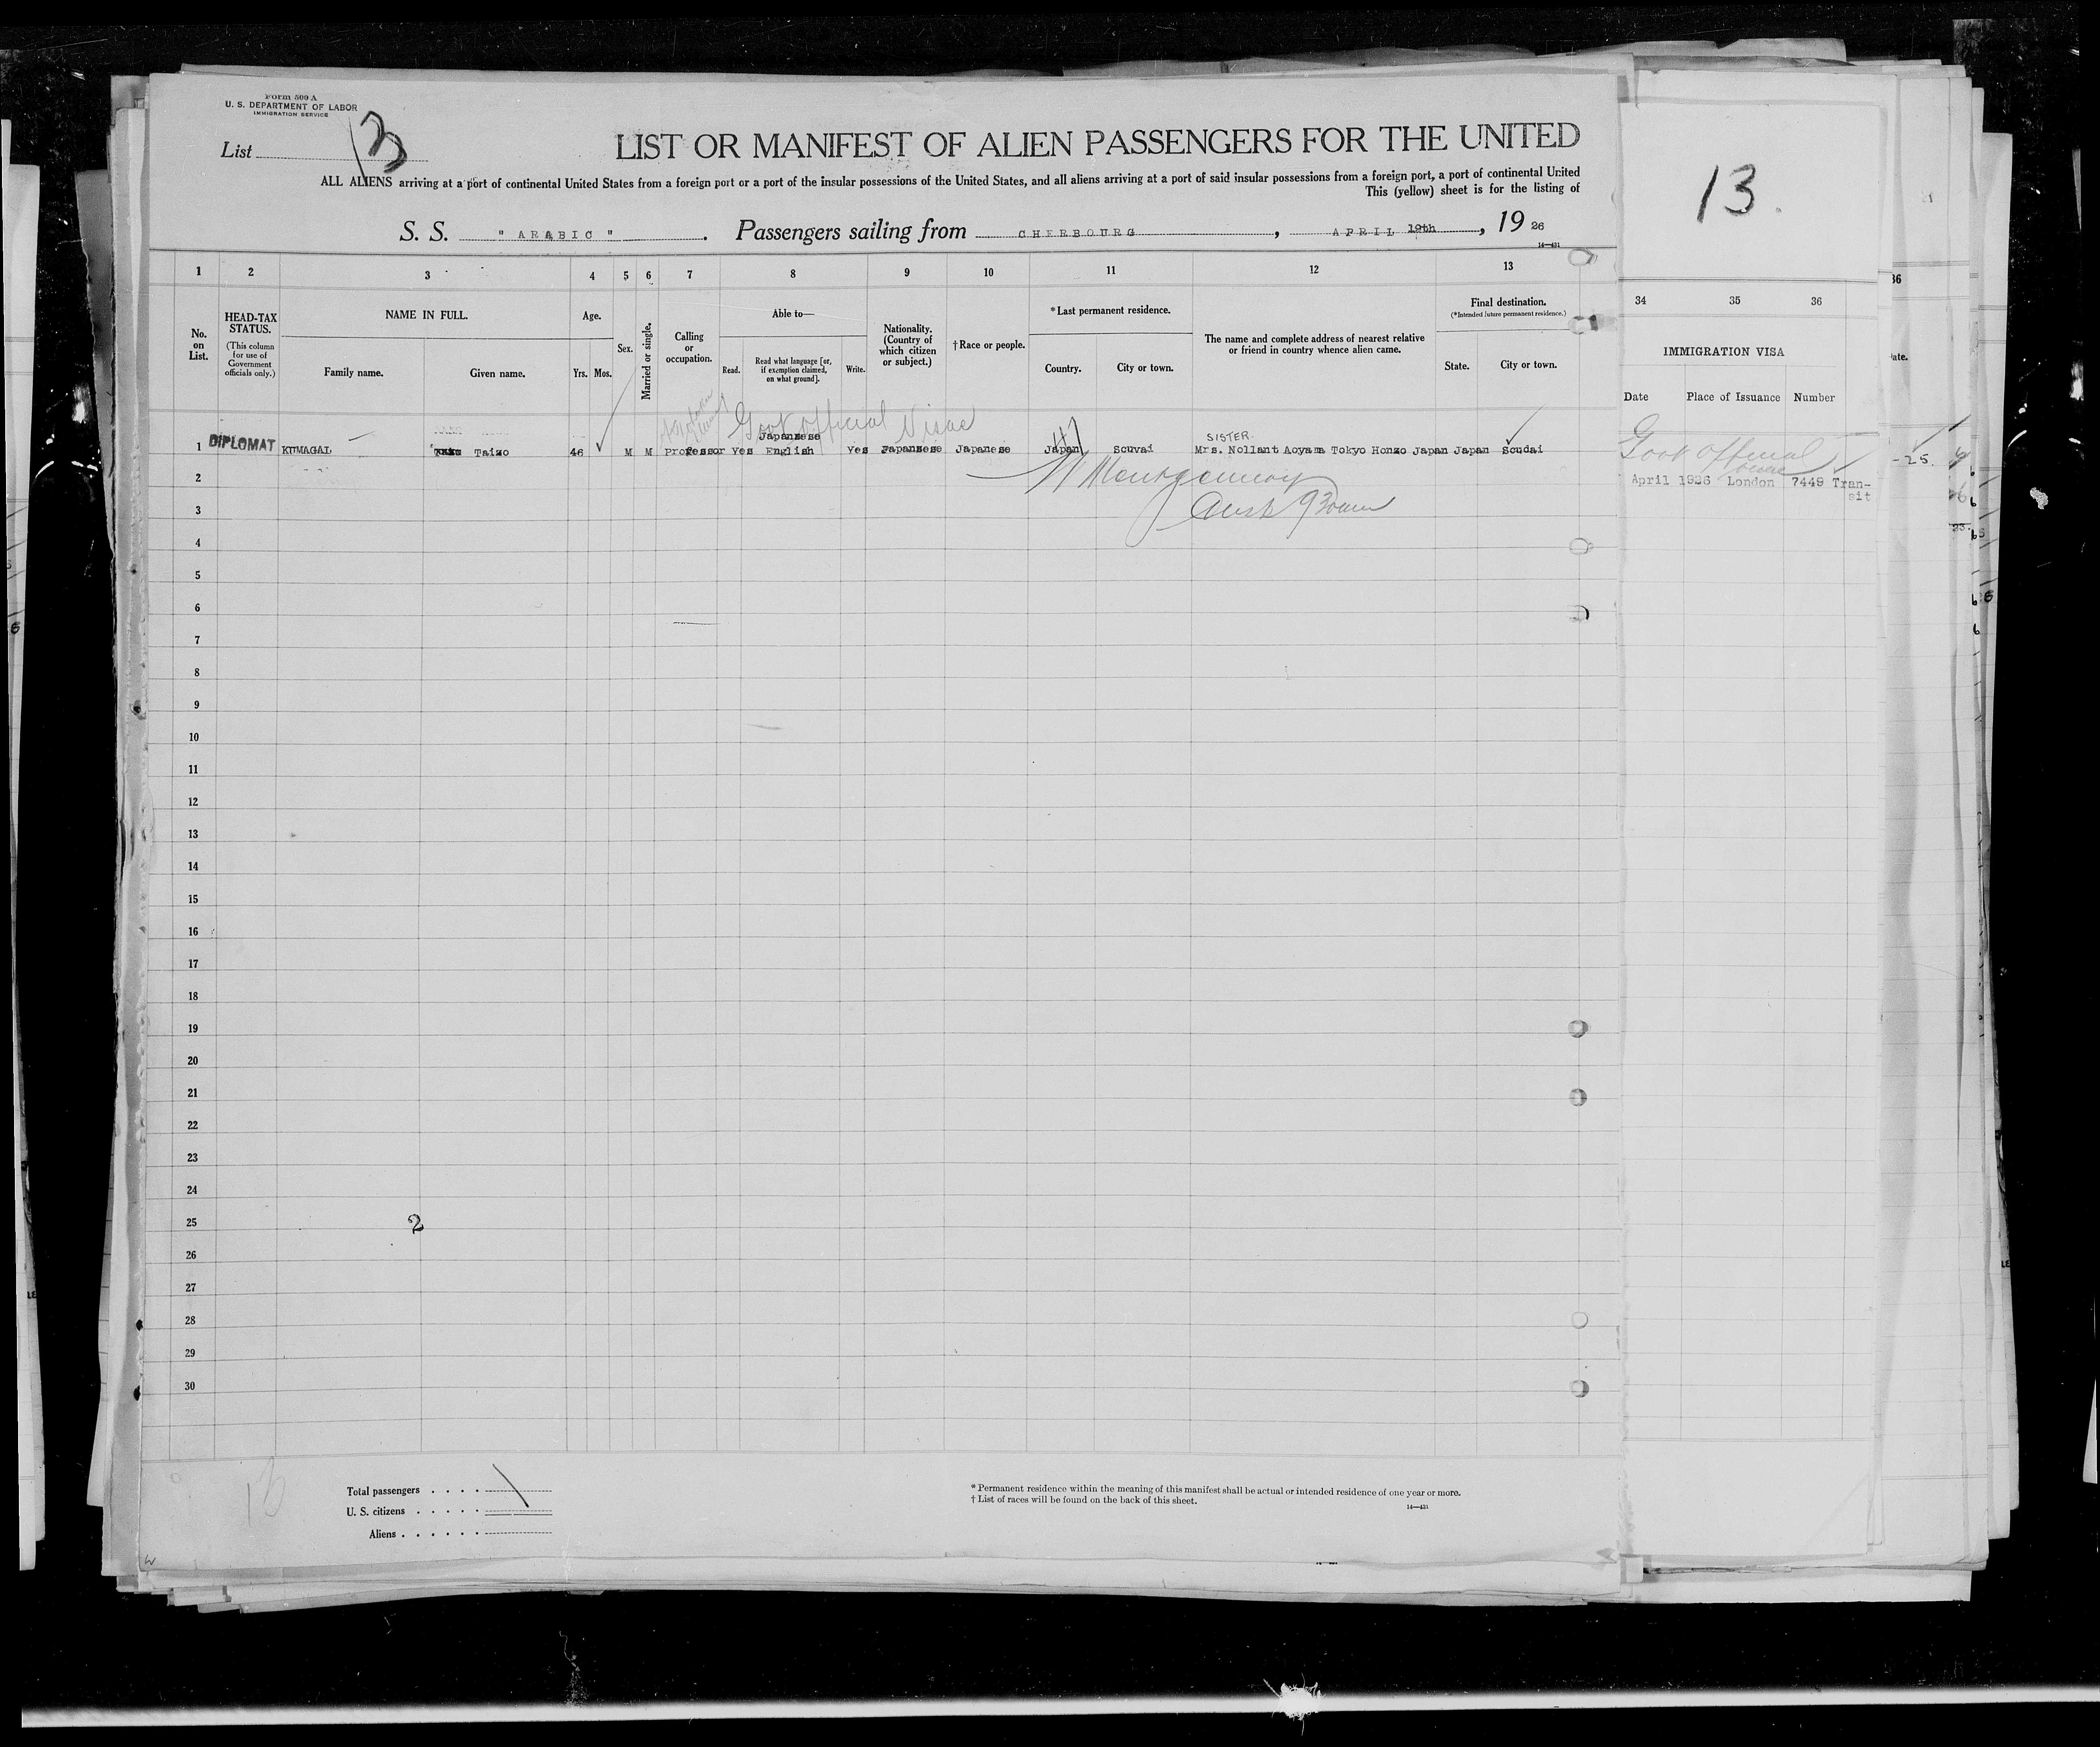 Form 500 A
U. S. DEPARTMENT OF LABOR
IMMIGRATION SERVICE
List 13
LIST OR MANIFEST OF ALIEN PASSENGERS FOR THE UNITED
ALL ALIENS arriving at a port of continental United States from a foreign port or a port of the insular possessions of the United States, and all aliens arriving at a port of said insular possessions from a foreign port, a port of continental United
This (yellow) sheet is for the listing of
S. S. " ARABIC ". Passengers sailing from CHERBOURG, APRIL 19th, 1926
14—421
1 2 3 4 5 6 7 8 9 10 11 12 13
No. on List.
HEAD-TAX STATUS.
(This column for use of Government officials only.)
NAME IN FULL.
Family name. Given name.
Age.
Yrs. Mos.
Sex.
Married or single.
Calling or occupation.
Able to—
Read. Read what language [or, if exemption claimed, on what ground]. Write.
Nationality. (Country of which citizen or subject.)
†Race or people.
*Last permanent residence.
Country. City or town.
The name and complete address of nearest relative or friend in country whence alien came.
Final destination.
(*Intended future permanent residence.)
State. City or town.
Govt official Visae
Japanese
SISTER
1 DIPLOMAT KUMAGAI Taizo 46 M M Professor Yes English Yes Japanese Japanese Japan Scuvai Mrs. Nollant Aoyama Tokyo Honzo Japan Japan Scudai
2
3
4
5
6
7
8
9
10
11
12
13
14
15
16
17
18
19
20
21
22
23
24
25 2
26
27
28
29
30
13
Total passengers
U. S. citizens
Aliens
* Permanent residence within the meaning of this manifest shall be actual or intended residence of one year or more.
† List of races will be found on the back of this sheet.
14—421
13.
34 35 36
IMMIGRATION VISA
Date Place of Issuance Number
Govt Official
April 1926 London 7449 Tran-
sit